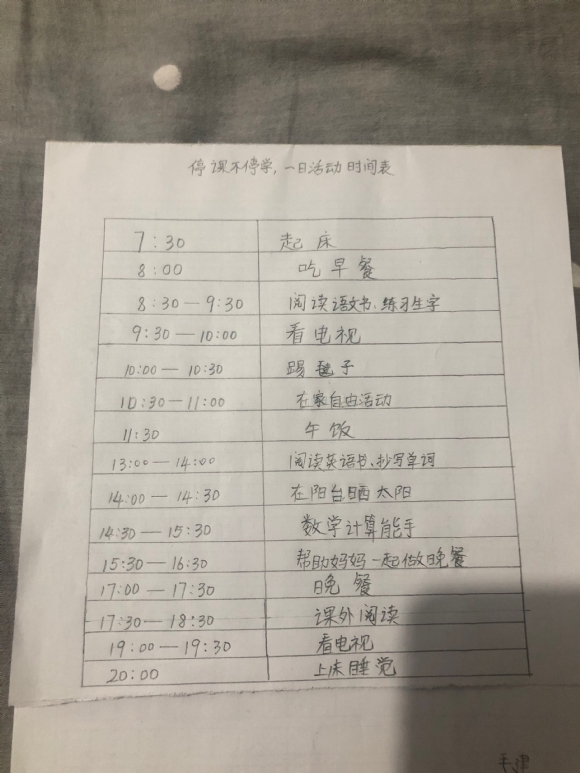 停课不停学，一日活动时间表
7:30 起床
8:00 吃早餐
8:30—9:30 阅读语文书、练习生字
9:30—10:00 看电视
10:00—10:30 踢毽子
10:30—11:00 在家自由活动
11:30 午饭
13:00—14:00 阅读英语书、抄写单词
14:00—14:30 在阳台晒太阳
14:30—15:30 数学计算能手
15:30—16:30 帮助妈妈一起做晚餐
17:00—17:30 晚餐
17:30—18:30 课外阅读
19:00—19:30 看电视
20:00 上床睡觉